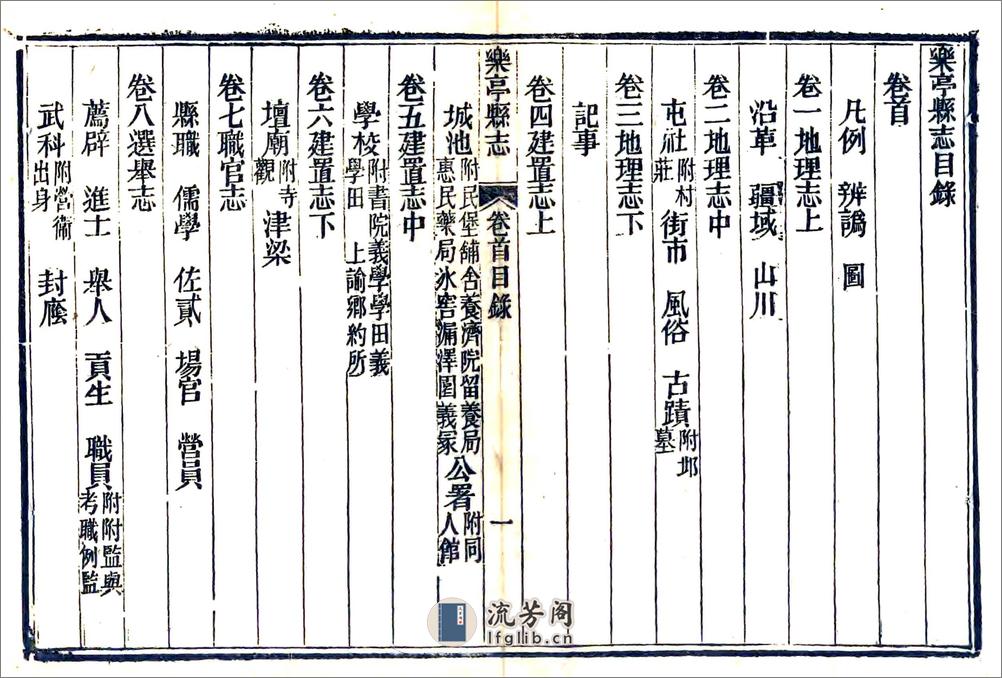 樂亭縣志目錄
卷首
凡例 辨譌 圖
卷一地理志上
沿革 疆域 山川
卷二地理志中
屯社附村莊 街市 風俗 古蹟附邱墓
卷三地理志下
記事
卷四建置志上
樂亭縣志 卷首目錄 一
城池附民堡舖舍養濟院留養局惠民藥局氷窖漏澤園義冢 公署附同人館
卷五建置志中
學校附書院義學學田義學田 上諭鄉約所
卷六建置志下
壇廟附寺觀 津梁
卷七職官志
縣職 儒學 佐貳 場官 營員
卷八選舉志
薦辟 進士 舉人 貢生 職員附附監與考職例監
武科附營衞出身 封廕
流芳阁
lfglib.cn